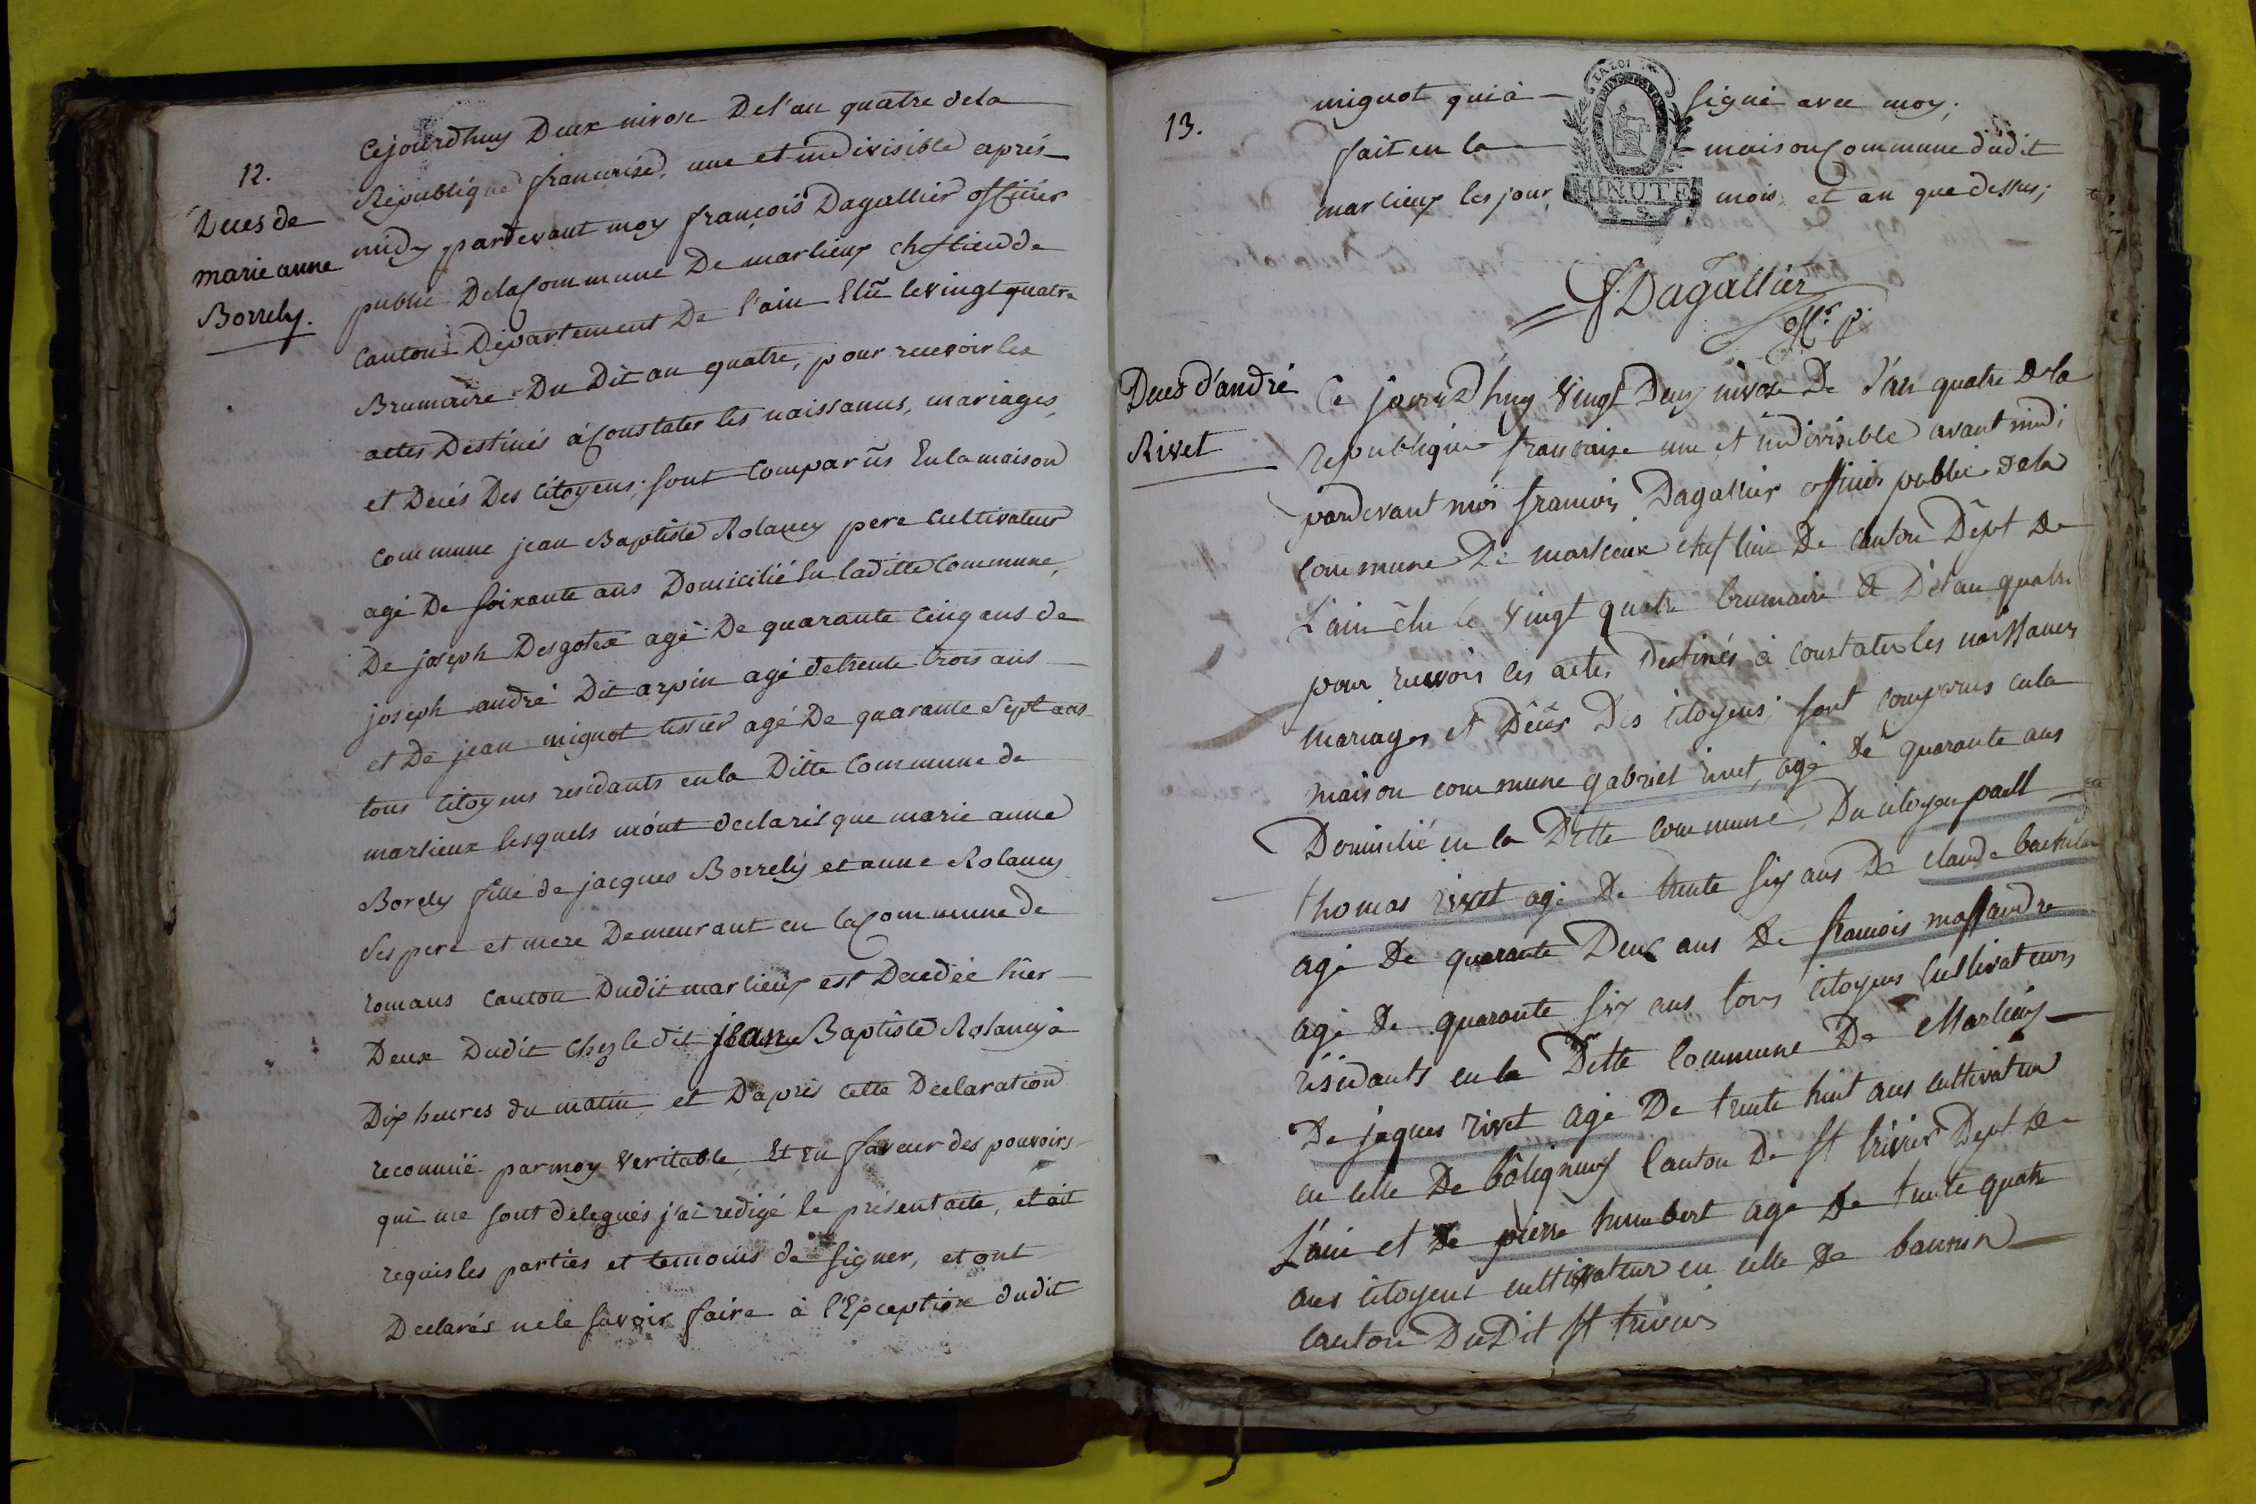 12.
Decés de
marie anne
Borrely.
Cejourd'huy Deux nivose De l'an quatre dela
République francaise, une et indivisible après
midy pardevant moy françois Dagallier officier
public Dela Commune De marlieux chef lieu de
canton Département De l'ain Elû le vingt quatre
Brumaire Du Dit an quatre, pour recevoir les
actes Destinés à Constater les naissances, mariages,
et Decés Des Citoyens; sont Comparûs En la maison
commune jean Baptiste Rolancy pere Cultivateur
agé De soixante ans Domicilié En laditte Commune,
De joseph Desgotex agé De quarante Cinq ans de
joseph andré Dit arpin agé de trente trois ans
et De jean mignot tissier agé De quarante Sept ans
tous Citoyens residants en la Ditte Commune de
marlieux lesquels m'ont declarés que marie anne
Borely fille de jacques Borrely et anne Rolancy
ses pere et mere Demeurant en la Commune de
romans Canton Dudit marlieux est Decedée hier
Deux Dudit Chez le dit jean Baptiste Rolancy à
Dix heures du matin, et D'après cette Declaration
reconnüe par moy veritable, Et En faveur des pouvoirs
qui me sont delegués j'ai redigé le présent acte, et ait
requis les parties et temoins de signer, et ont
Declarés ne le savoir faire à l'Exception dudit
13.
mignot qui à signé avec moy;
LA LOI
fait en la maison Commune dudit
MINUTE
marlieux les jour, mois et an que dessus;
f. Dagallier
off.r p.
Deces d'andré
Rivet
Ce jourd'huy vingt Deux nivose De l'an quatre de la
republique francaise une et indivisible avant midi
pardevant moi francois Dagallier officier public dela
commune De marlieux chef lieu De Canton Dépt de
L'ain élu le vingt quatre brumaire De l'an quatre
pour recevoir les actes Destinés à constater les naissances
mariages et Décés Des Citoyens; sont comparus en la
maison commune gabriel rivet, agé De quarante ans
Domicilié en la Ditte commune, Du citoyen
thomas rivet agé De trente six ans De claude
agé De quarante Deux ans De francois massandre
agé De quarante six ans tous citoyens cultivateurs
résidants en la Ditte Commune De Marlieux
De jaques rivet agé De trente huit ans cultivateur
en celle De bouligneux Canton De St trivier Dept De
L'ain et De pierre humbert agé De trente quatre
ans citoyens cultivateur en celle De baneins
canton DuDit St trivier